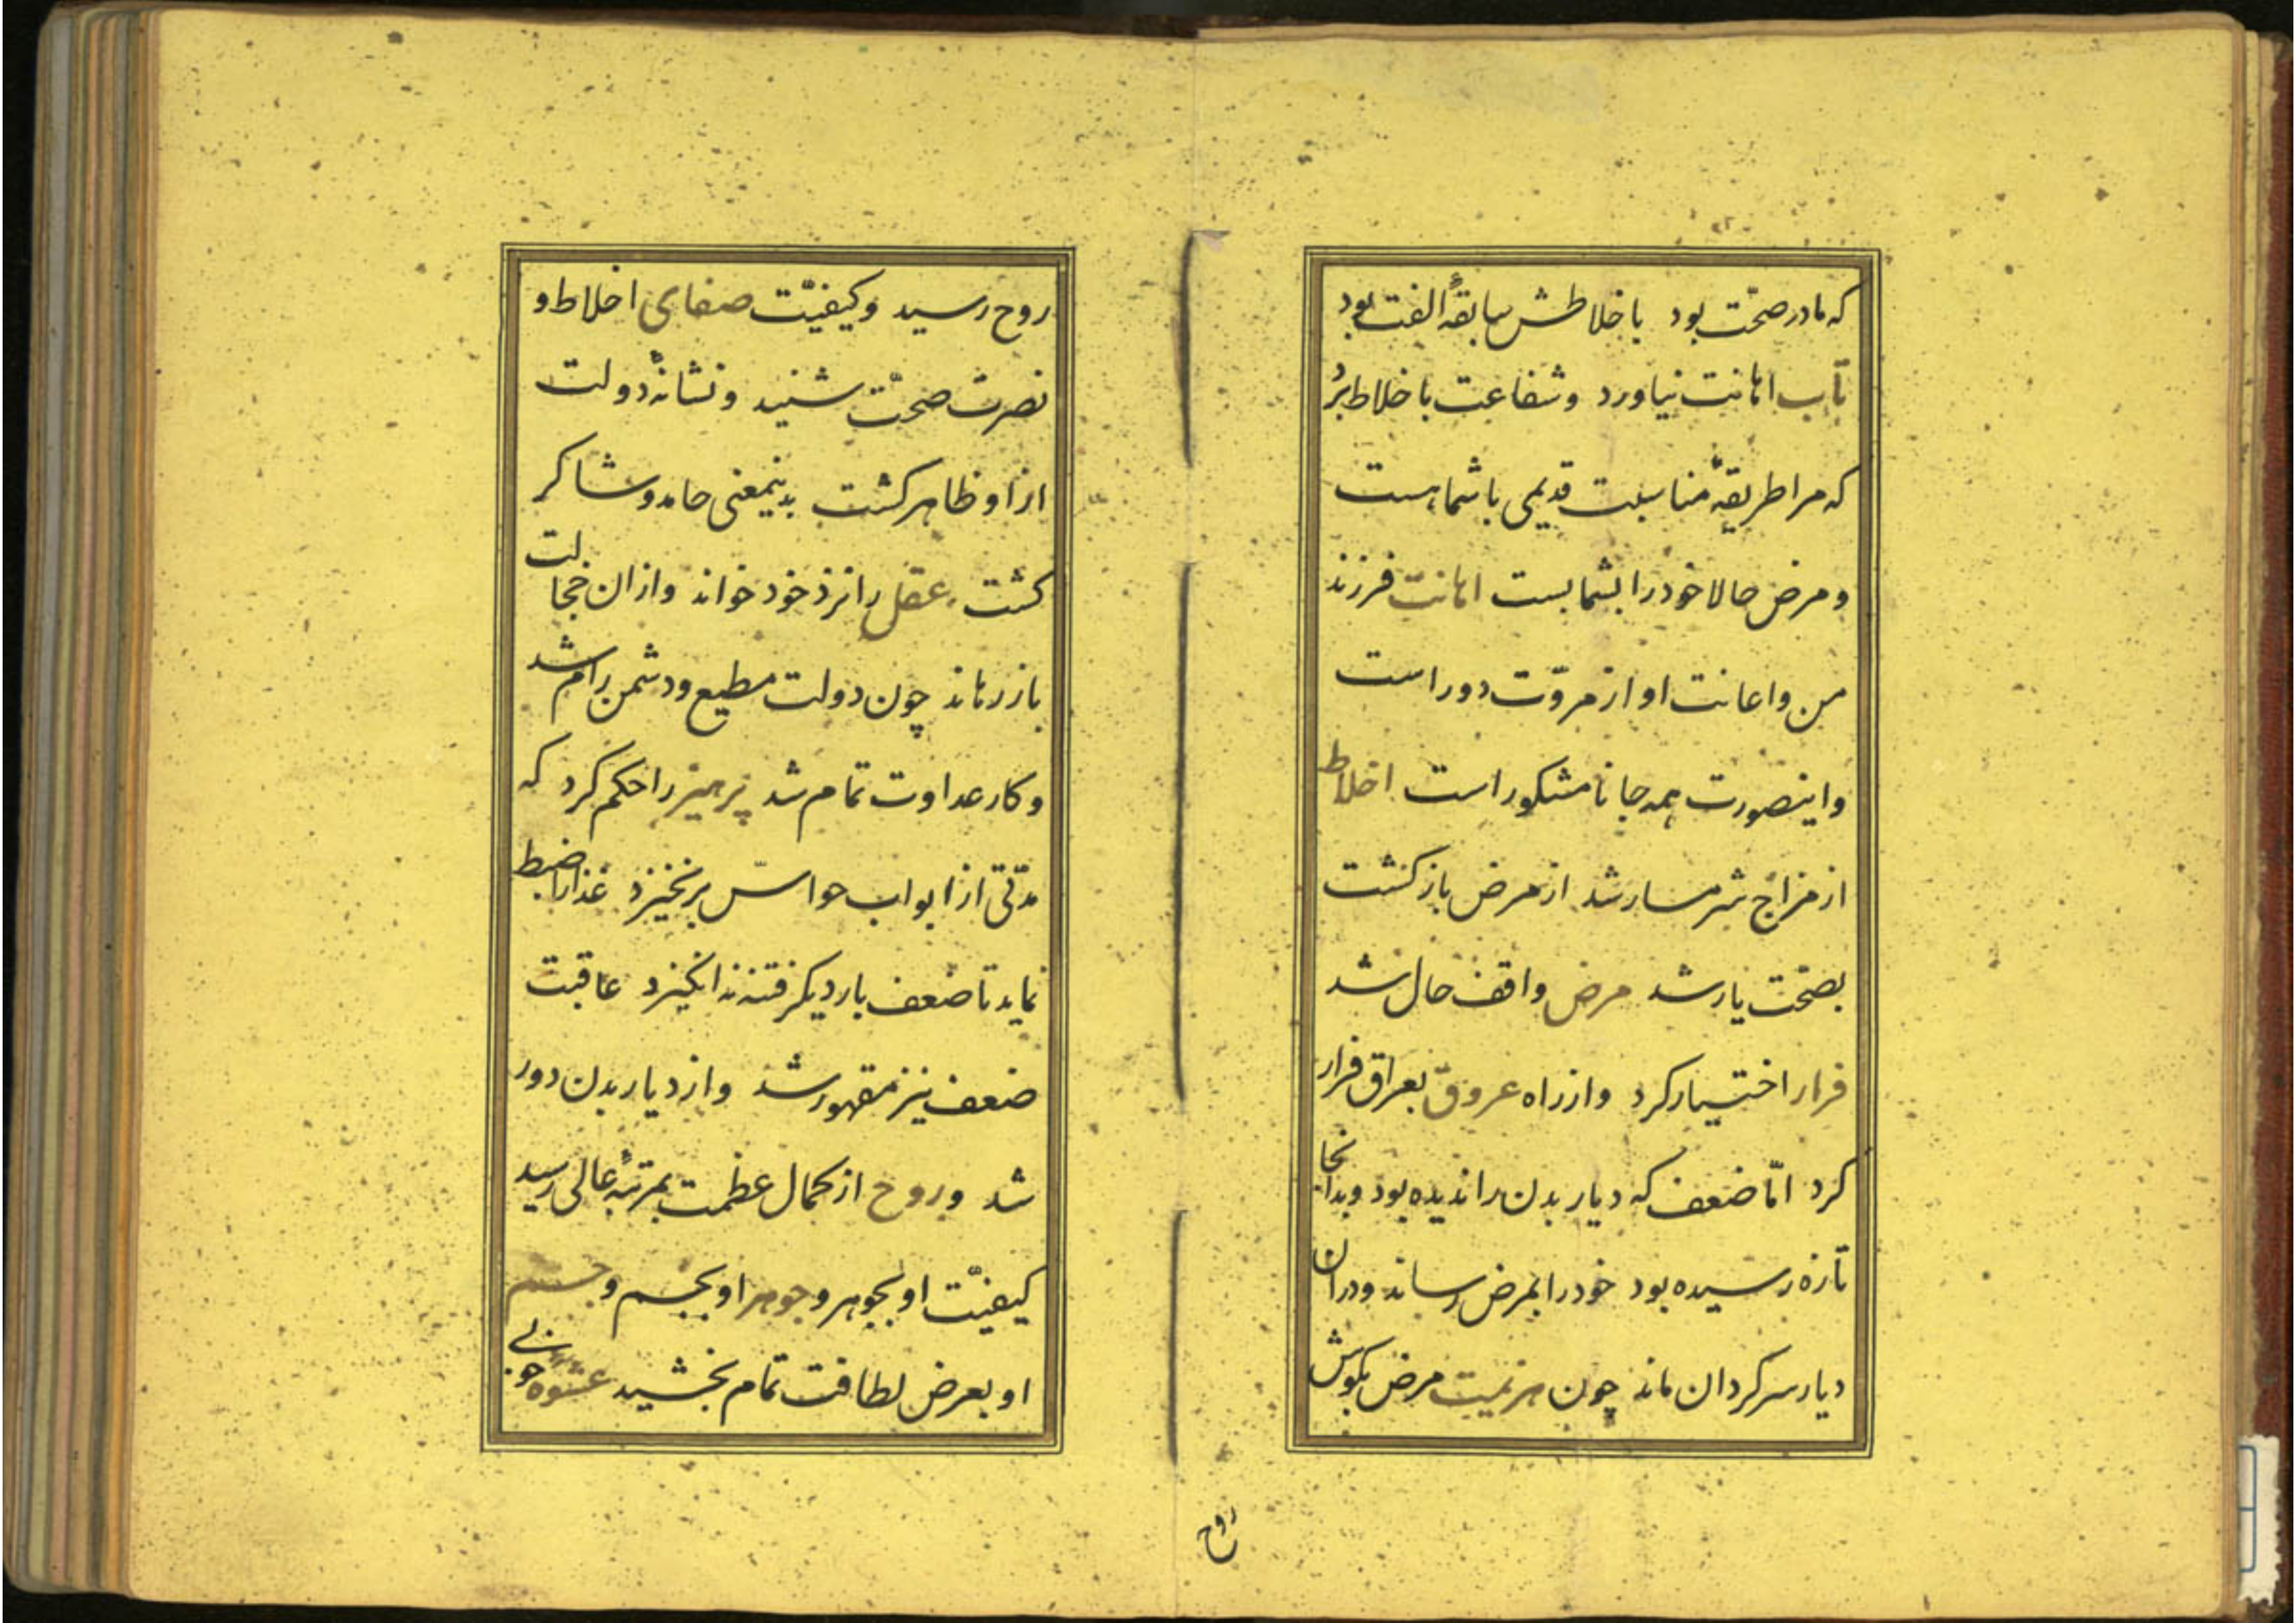 که مادر صحّت بود باخلاطش سابقهٔ الفت بود
تاب اهانت نیاورد وشفاعت باخلاط برُد
که مرا طریقهٔ مناسبت قدیمی باشماهست
ومرض حالا خود را بشما بست اهانت فرزند
من واعانت او از مروّت دور است
واینصورت همه جا نامشکور است اخلاط
از مزاج شرمسار شد از مرض بازکشت
بصحّت یار شد مرض واقف حال شد
فرار اختیار کرد وازراه عروق بعراق فرار
کرد امّا ضعف که دیار بدن راندیده بود وبدانجا
تازه رسیده بود خود را بمرض رساند ودران
دیار سرکردان ماند چون هزیمت مرض بکوش
روح
روح رسید وکیفیّت صفای اخلاط و
نصرت صحّت شنید ونشانهٔ دولت
ازاو ظاهر کشت بدینمعنی حامد وشاکر
کشت عقل را نزد خود خواند وازان خجالت
بازرهاند چون دولت مطیع ودشمن رام شد
وکار عداوت تمام شد پرهیز را حکم کرد که
مدّتی از ابواب حواسّ برنخیزد غذا را ضبط
نماید تا ضعف بار دیکر فتنه نه انکیزد عاقبت
ضعف نیز مقهور شد وازدیار بدن دور
شد وروح ازکمال عظمت بمرتبهٔ عالی رسید
کیفیّت او بجوهر وجوهر او بجسم وجسم
او بعرض لطافت تمام بخشید عشوه جویی